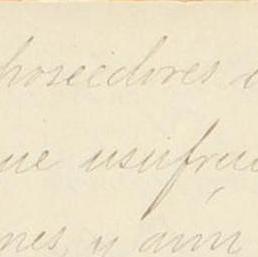 poseedores
que usufruc
nes, y aun